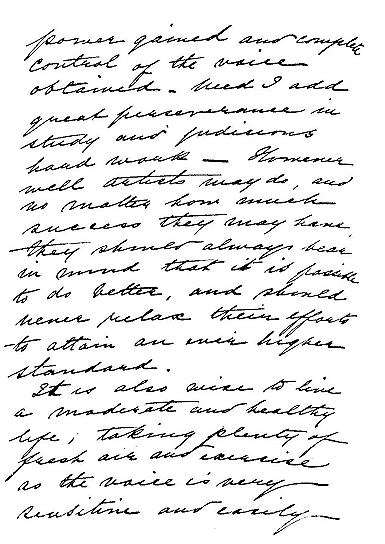 power gained and complete
control of the voice
obtained - Need I add
great perseverance in
study and judicious
hard work - However
well artists may do, and
no matter how much
success they may have,
they should always bear
in mind that it is possible
to do better, and should
never relax their efforts
to attain an ever higher
standard.
It is also wise to live
a moderate and healthy
life; taking plenty of
fresh air and exercise
as the voice is very
sensitive and easily